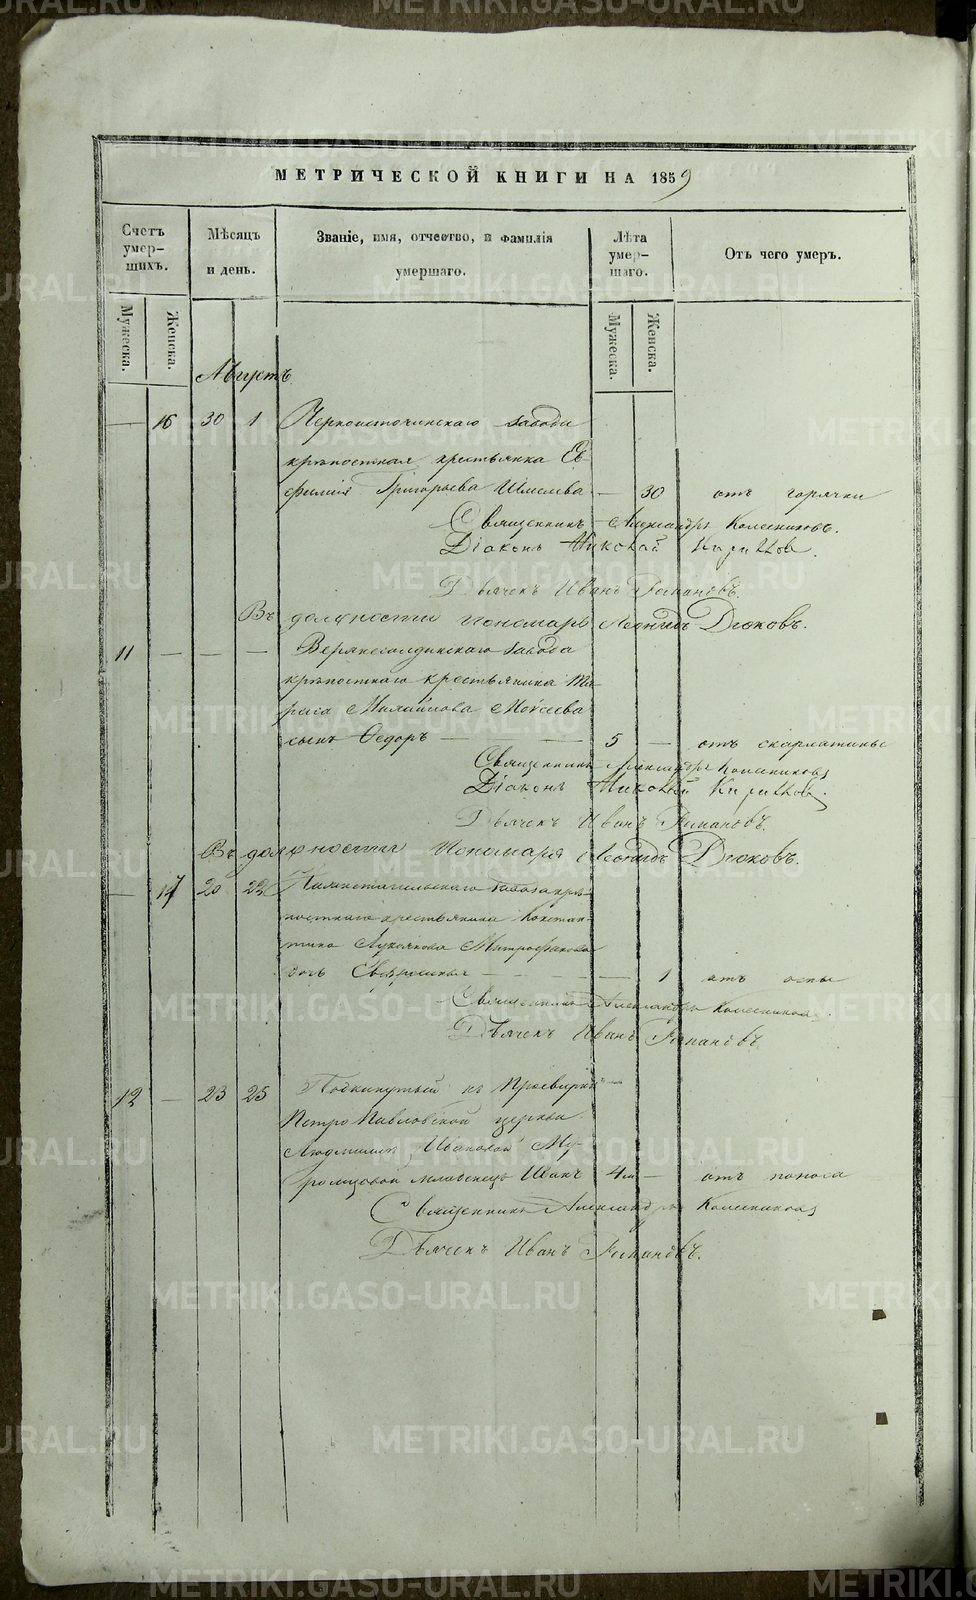 МЕТРИЧЕСКОЙ КНИГИ НА 1859
Счетъ умер-шихъ.
Мѣсяцъ и день.
Званіе, имя, отчество, и фамилія умершаго.
Лѣта умер-шаго.
Отъ чего умеръ.
Мужеска.
Женска.
Мужеска.
Женска.
Августъ.
— 16 30 1 Черноисточинскаго завода
крѣпостная крестьянка Ев-
фимия Григорьева Шмелева — 30 отъ горячки
Священникъ Александръ Колесниковъ.
Діаконъ Николай
Дьячекъ Иванъ Романовъ.
Въ должности пономаря Леонидъ Дюковъ.
11 — — — Верхнесалдинскаго завода
крѣпостнаго крестьянина Та-
раса Моисеева
сынъ Ѳедоръ — 5 — отъ скарлатины
Священникъ Александръ Колесниковъ
Діаконъ Николай
Дьячекъ Иванъ Романовъ.
Въ должности Пономаря Леонидъ Дюковъ.
— 17 20 22 Нижнетагильскаго завода крѣ-
постнаго крестьянина Констан-
тина Лукоянова Митрофанова
дочь — — 1 отъ оспы
Священникъ Александръ Колесниковъ.
Дьячекъ Иванъ Романовъ.
12 — 23 25 Подкинутый къ Просвирнѣ
Петро Павловской церкви
Людмилѣ Ивановой Му-
ромцовой младенецъ Иванъ 4 м — отъ поноса
Священникъ Александръ Колесниковъ
Дьячекъ Иванъ Романовъ.
METRIKI.GASO-URAL.RU